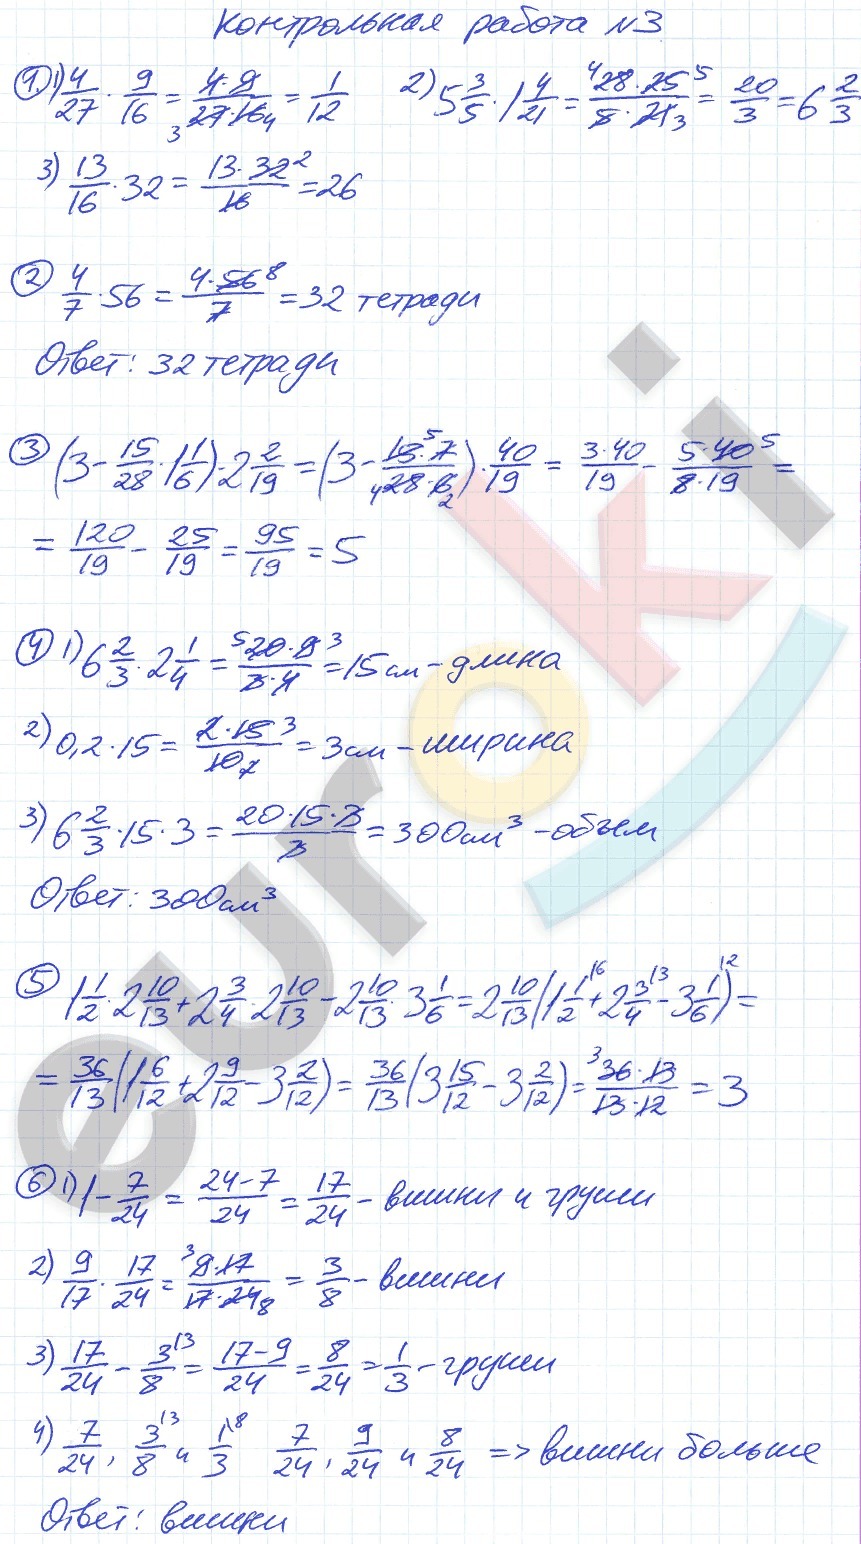 Контрольная работа №3
① 1) 4/27 · 9/16 = 4·9/27·16 3 4 = 1/12 2) 5 3/5 · 1 4/21 = 4 28·25 5/5·21 3 = 20/3 = 6 2/3
3) 13/16 · 32 = 13·32 2/16 = 26
② 4/7 · 56 = 4·56 8/7 = 32 тетради
Ответ: 32 тетради
③ (3 - 15/28 · 1 1/6) · 2 2/19 = (3 - 15 5·7/4 28·6 2) · 40/19 = 3·40/19 - 5·40 5/8·19 =
= 120/19 - 25/19 = 95/19 = 5
④ 1) 6 2/3 · 2 1/4 = 5 20·9 3/3·4 = 15 см - длина
2) 0,2 · 15 = 2·15 3/10 = 3 см - ширина
3) 6 2/3 · 15 · 3 = 20·15·3/3 = 300 см³ - объем
Ответ: 300 см³
⑤ 1 1/2 · 2 10/13 + 2 3/4 · 2 10/13 - 2 10/13 · 3 1/6 = 2 10/13 (1 1/2 \6 + 2 3/4 \3 - 3 1/6 \2) =
= 36/13 (1 6/12 + 2 9/12 - 3 2/12) = 36/13 (3 15/12 - 3 2/12) = 3 36·13/13·12 = 3
⑥ 1) 1 - 7/24 = 24-7/24 = 17/24 - вишни и груши
2) 9/17 · 17/24 = 3 9·17/17·24 8 = 3/8 - вишни
3) 17/24 - 3/8 \3 = 17-9/24 = 8/24 = 1/3 - груши
4) 7/24, 3/8 \3 и 1/3 \8 7/24, 9/24 и 8/24 => вишни больше
Ответ: вишни
euroki